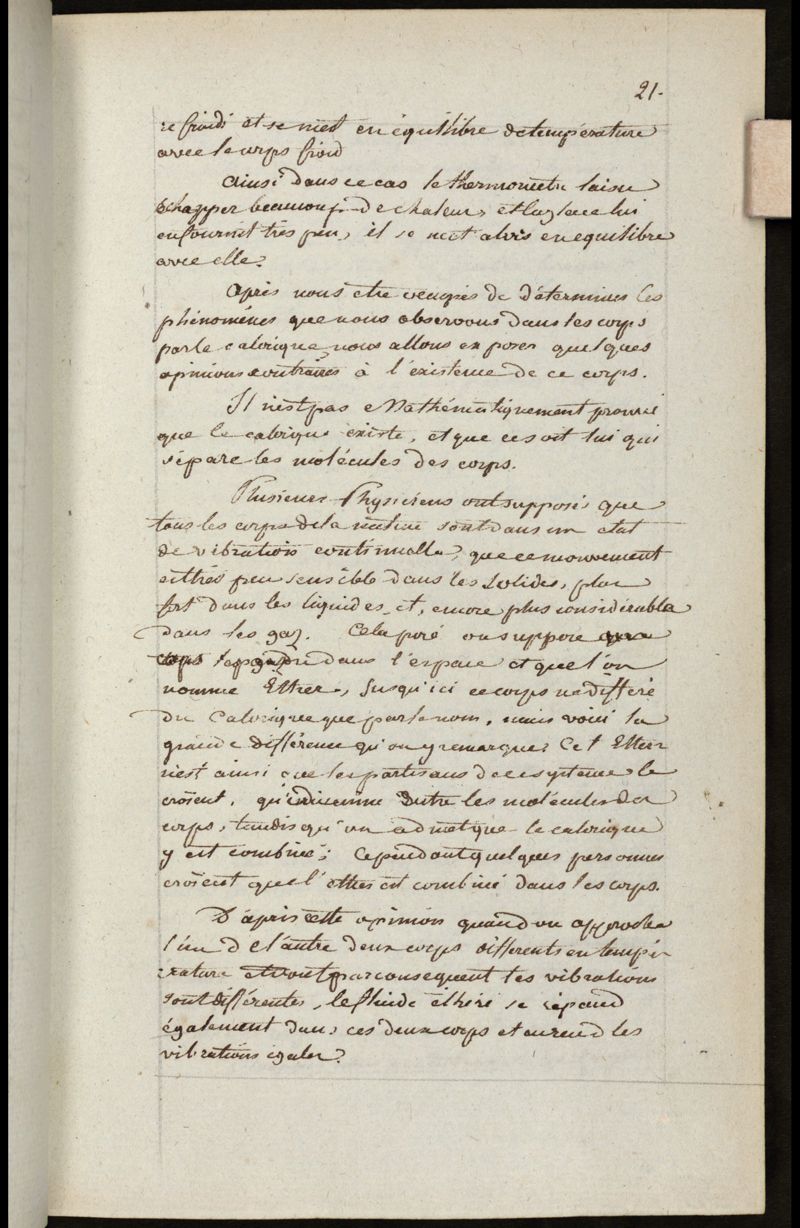 21.
refroidi et se met en équilibre de température
avec le corps froid
Ainsi dans ce cas le thermometre laisse
échapper beaucoup de chaleur, et la glace lui
en fournit très peu, il se met alors en equilibre
avec elle.
Après nous etre occupés de déterminer les
phénomènes que nous observons dans les corps
par le calorique, nous allons exposer quelques
opinions contraires à l'existence de ce corps.
Il n'est pas Mathématiquement prouvé
que le calorique existe, et que ce soit lui qui
sépare les molécules des corps.
Plusieurs Physiciens ont supposés que
tous les corps de la nature sont dans un etat
de vibration continuelle, que ce mouvement
est très peu sensible dans les solides, plus
fort dans les liquides et, encore plus considérable
dans les gaz. Cela posé on suppose
corps répandu dans l'espace et que l'on
nomme Ether, jusqu'ici ce corps ne différe
du Calorique que par le nom, mais voici la
grande différence qu'on y remarque: Cet Ether
n'est ainsi que les partisans de ce systeme le
croient, entre les molécules des
corps, tandis qu'on admet que le calorique
y est combiné; Cependant quelques personnes
croient que l'ether est combiné dans les corps.
D'après cette opinion quand on approche
l'un de l'autre deux corps différents en tempé-
rature et dont par consequent les vibrations
sont différentes, le fluide éthéré se répand
également dans ces deux corps et en rend les
vibrations egales.